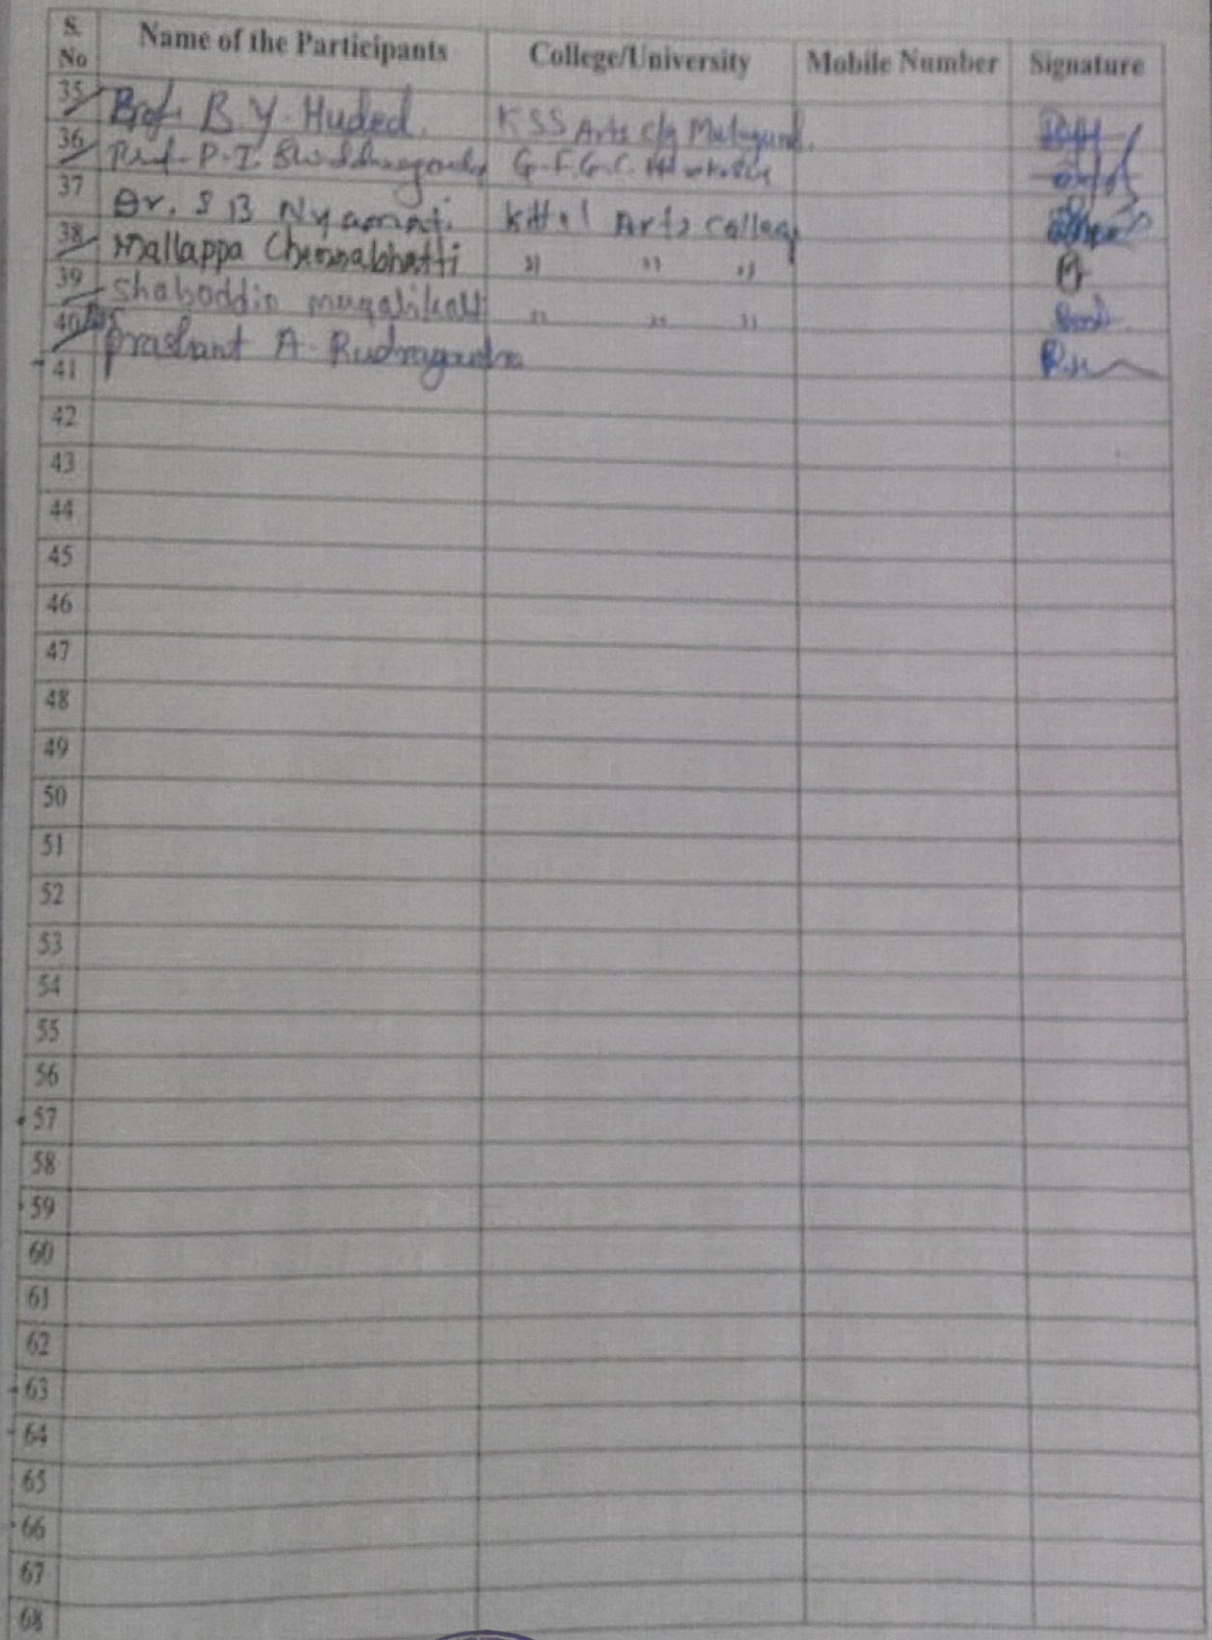 S. No Name of the Participants College/University Mobile Number Signature
35 Prof. B Y. Huded. KSS Arts clg Mulagund.
36 Prof. P. I. G.F.G.C.
37 Dr. S B Nyamati. Kittel Arts College
38 Mallappa Chennabhatti " " "
39 Shaboddin mugalikatti " " "
40 Prashant A. Rudragouda
41
42
43
44
45
46
47
48
49
50
51
52
53
54
55
56
57
58
59
60
61
62
63
64
65
66
67
68